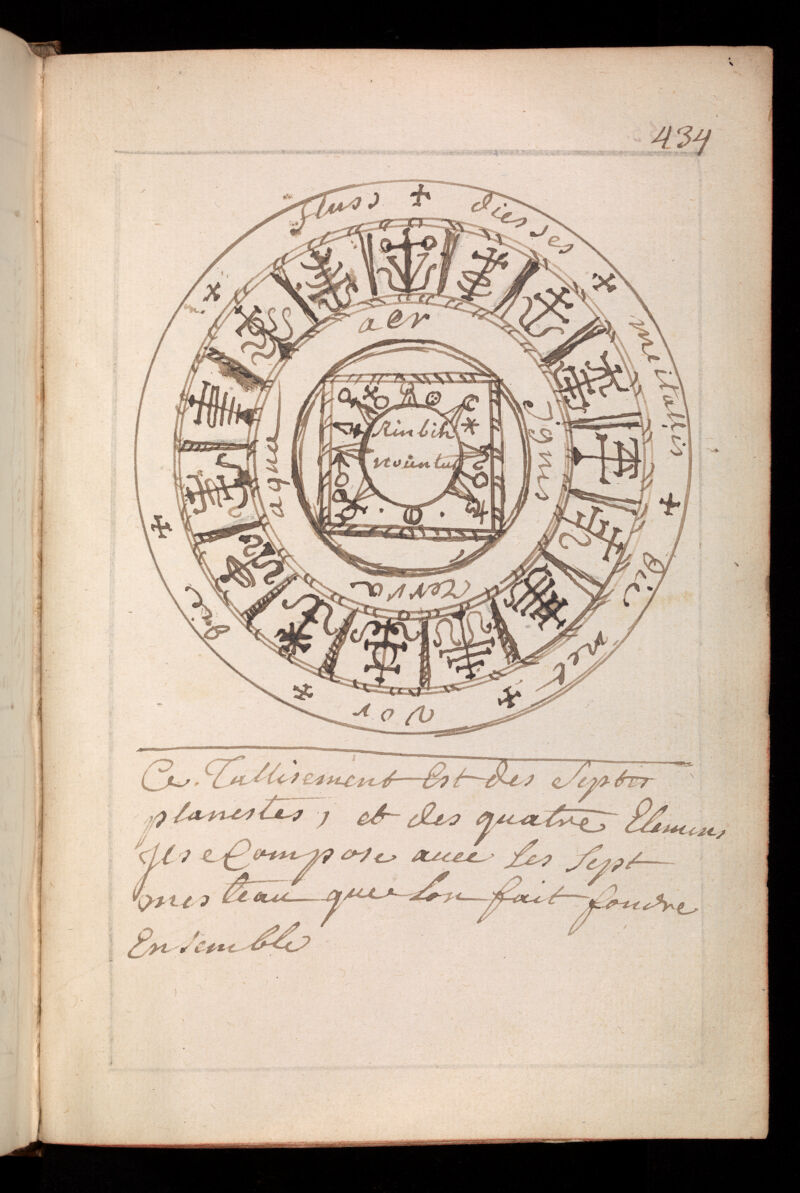 434
fluss ✠ diesses ✠ meitallis ✠ die net ✠ vor ✠ ✠ ✠
aer
Ignis
Zerra
aqua
Rinbih
Ce. Tallisement Est des Septs
planestes, et des quatre Elemens
Il se Compose avec les Sept
mesteau quee lon fait fondre
Ensemble